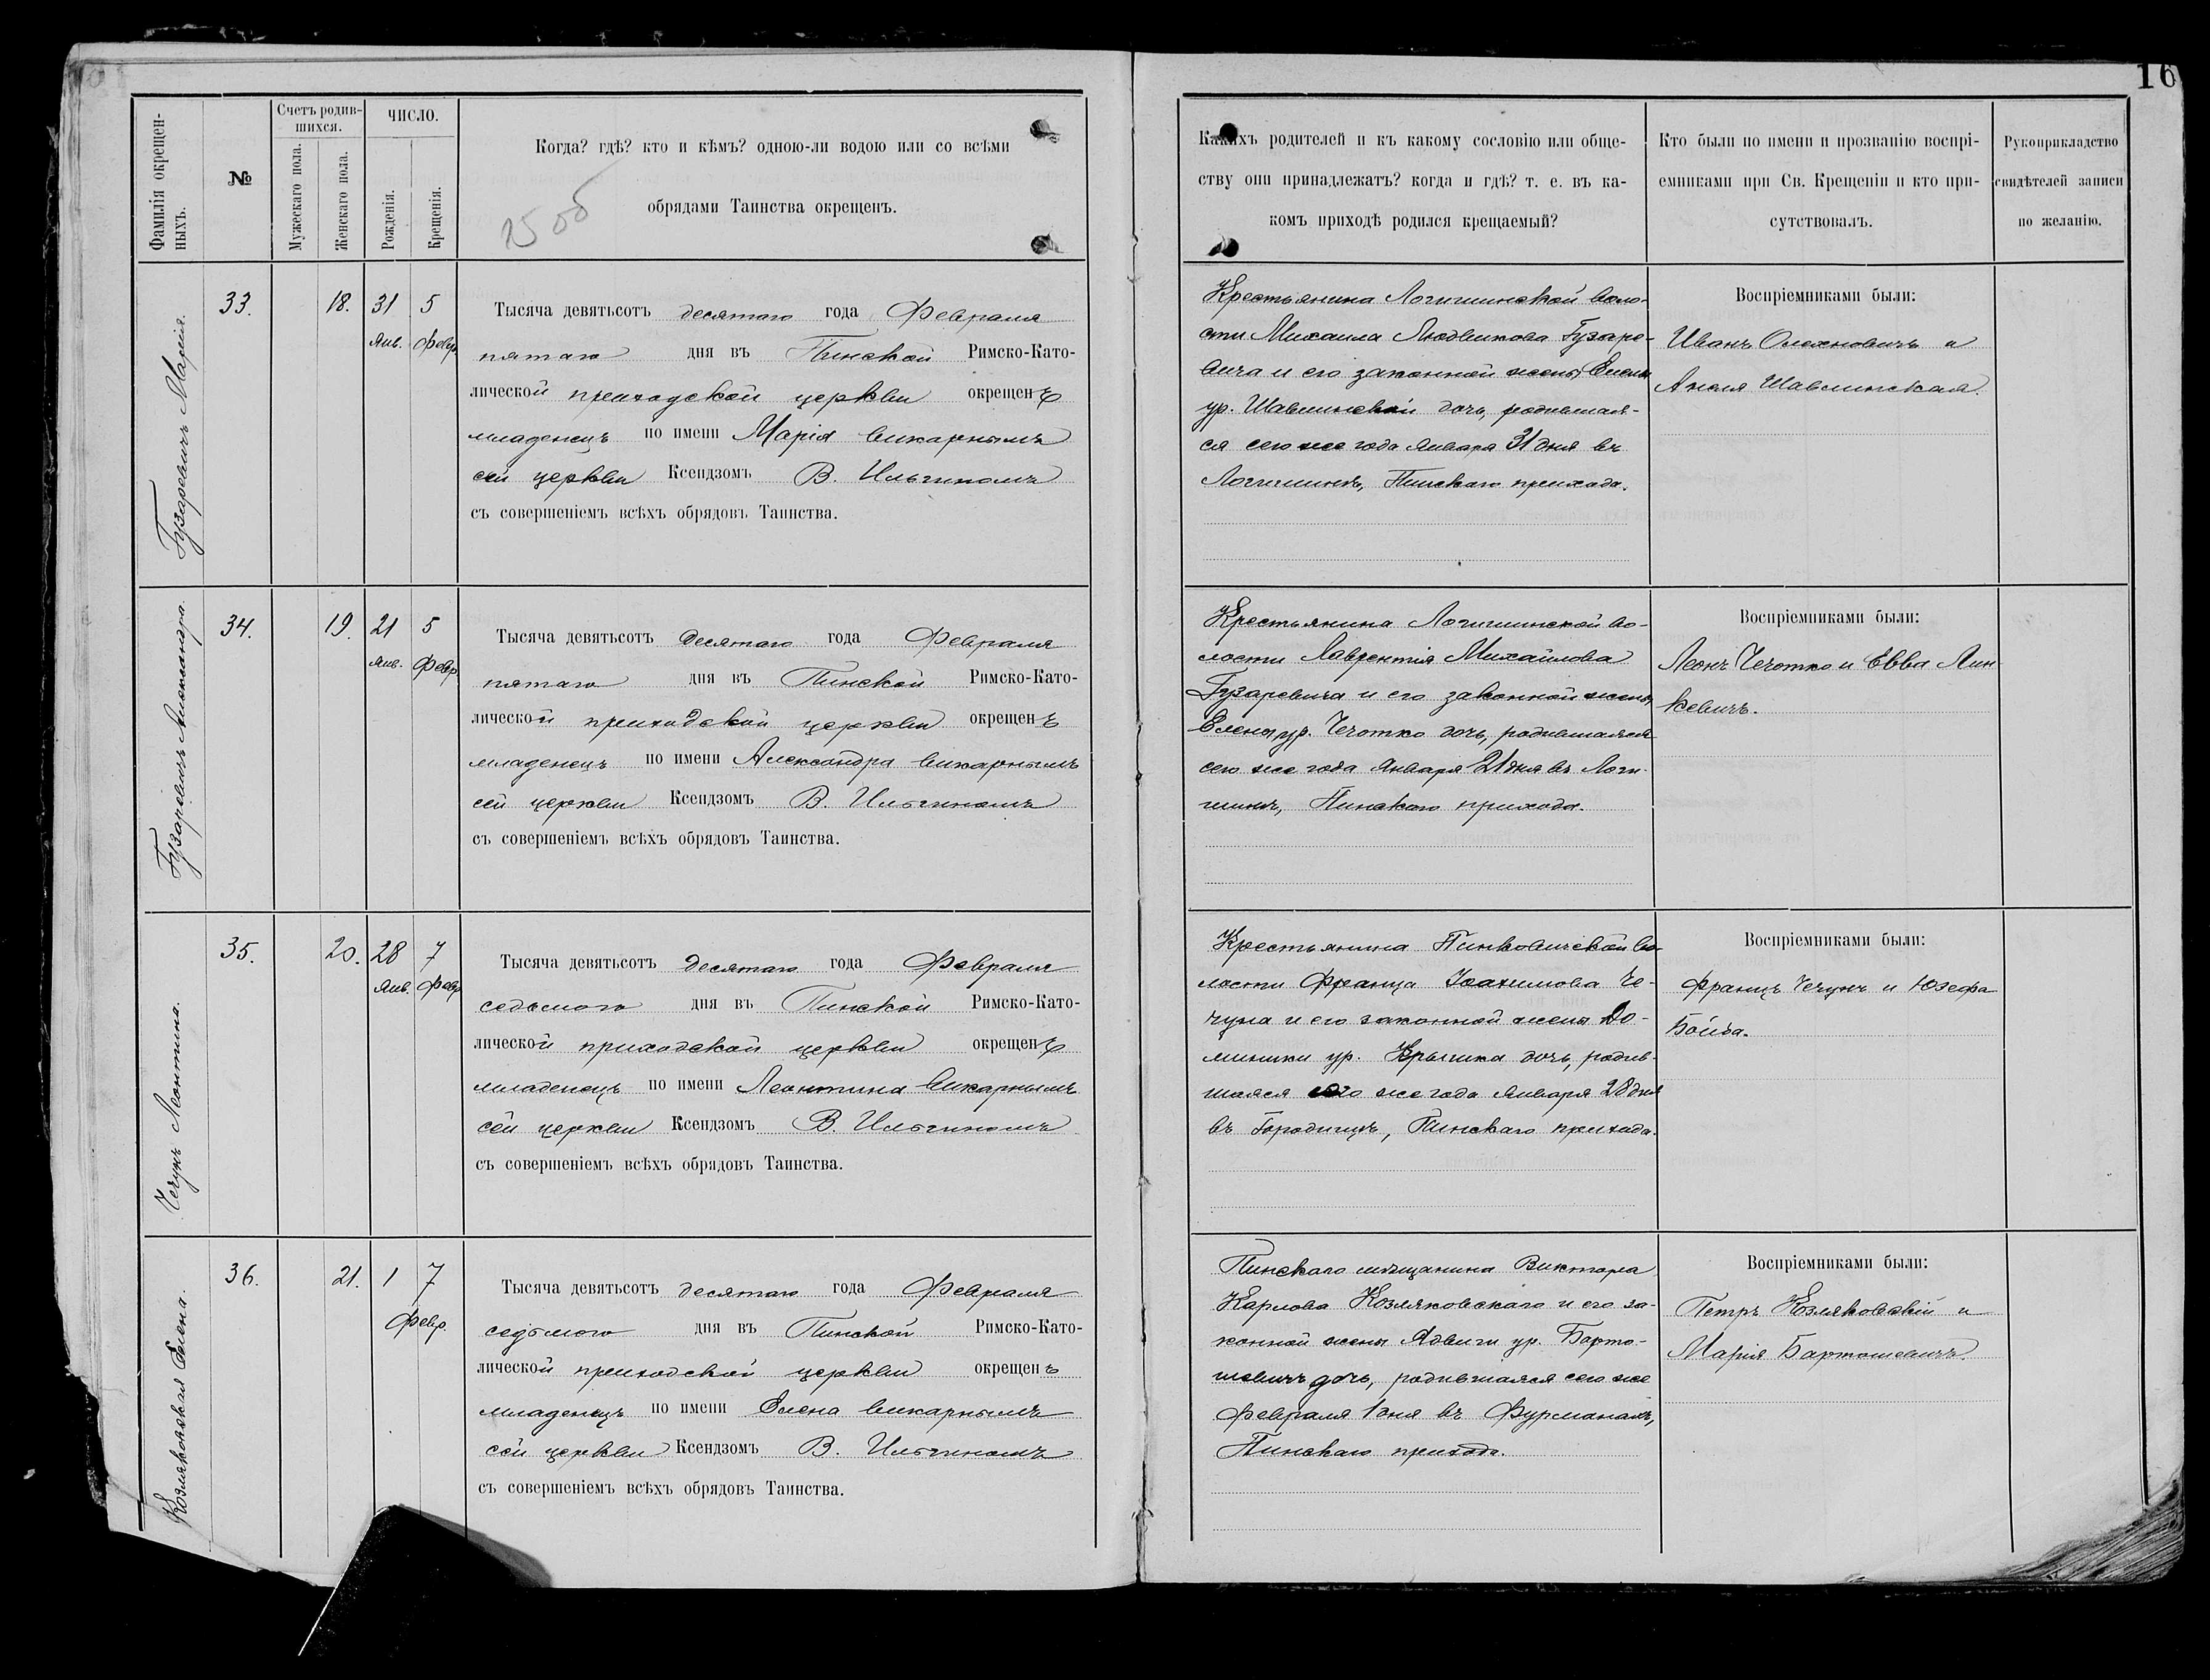 16
Фамилія окрещен-
ныхъ.
№
Счетъ родив-
шихся.
Мужескаго пола.
Женскаго пола.
ЧИСЛО.
Рожденія.
Крещенія.
Когда? гдѣ? кто и кѣмъ? одною-ли водою или со всѣми
обрядами Таинства окрещенъ.
Какихъ родителей и къ какому сословію или обще-
ству они принадлежатъ? когда и гдѣ? т. е. въ ка-
комъ приходѣ родился крещаемый?
Кто были по имени и прозванію воспрі-
емниками при Св. Крещеніи и кто при-
сутствовалъ.
Рукоприкладство
свидѣтелей записи
по желанію.
Гузаревичъ Марія.
33.
18.
31
Янв.
5
Февр.
Тысяча девятьсотъ десятаго года Февраля
пятаго дня въ Пинской Римско-Като-
лической приходской церкви окрещенъ
младенецъ по имени Марія викарнымъ
сей церкви Ксендзомъ В. Ильгиномъ
съ совершеніемъ всѣхъ обрядовъ Таинства.
Крестьянина Логишинской воло-
сти Михаила Людвикова Гузаре-
вича и его законной жены Елены
ур. Шавлинской дочь, родившая-
ся сего же года Января 31 дня въ
Логишинѣ, Пинскаго прихода.
Воспріемниками были:
Иванъ Олехновичъ и
Анеля Шавлинская.
Гузаревичъ Александра.
34.
19.
21
Янв.
5
Февр.
Тысяча девятьсотъ десятаго года Февраля
пятаго дня въ Пинской Римско-Като-
лической приходской церкви окрещенъ
младенецъ по имени Александра викарнымъ
сей церкви Ксендзомъ В. Ильгиномъ
съ совершеніемъ всѣхъ обрядовъ Таинства.
Крестьянина Логишинской во-
лости Лаврентія Михайлова
Гузаревича и его законной жены
Елены ур. Чечотко дочь, родившаяся
сего же года Января 21 дня въ Логи-
шинѣ, Пинскаго прихода.
Воспріемниками были:
Леонъ Чечотко и Евва Лин-
кевичъ.
Чечунъ Леонтина.
35.
20.
28
Янв.
7
Февр.
Тысяча девятьсотъ десятаго года Февраля
седьмого дня въ Пинской Римско-Като-
лической приходской церкви окрещенъ
младенецъ по имени Леонтина викарнымъ
сей церкви Ксендзомъ В. Ильгиномъ
съ совершеніемъ всѣхъ обрядовъ Таинства.
Крестьянина Пинковичской во-
лости Франца Іоахимова Че-
чуна и его законной жены До-
миники ур. дочь, родив-
шаяся сего же года Января 28 дня
въ Городищѣ, Пинскаго прихода.
Воспріемниками были:
Францъ Чечунъ и Юзефа
Бойба.
Козляковская Елена.
36.
21.
1
7
Февр.
Тысяча девятьсотъ десятаго года Февраля
седьмого дня въ Пинской Римско-Като-
лической приходской церкви окрещенъ
младенецъ по имени Елена викарнымъ
сей церкви Ксендзомъ В. Ильгиномъ
съ совершеніемъ всѣхъ обрядовъ Таинства.
Пинскаго мѣщанина Виктора
Карлова Козляковскаго и его за-
конной жены Ядвиги ур. Барто-
шевичъ дочь, родившаяся сего же
Февраля 1 дня въ Фурманахъ,
Пинскаго прихода.
Воспріемниками были:
Петръ Козляковскій и
Марія Бартошевичъ.